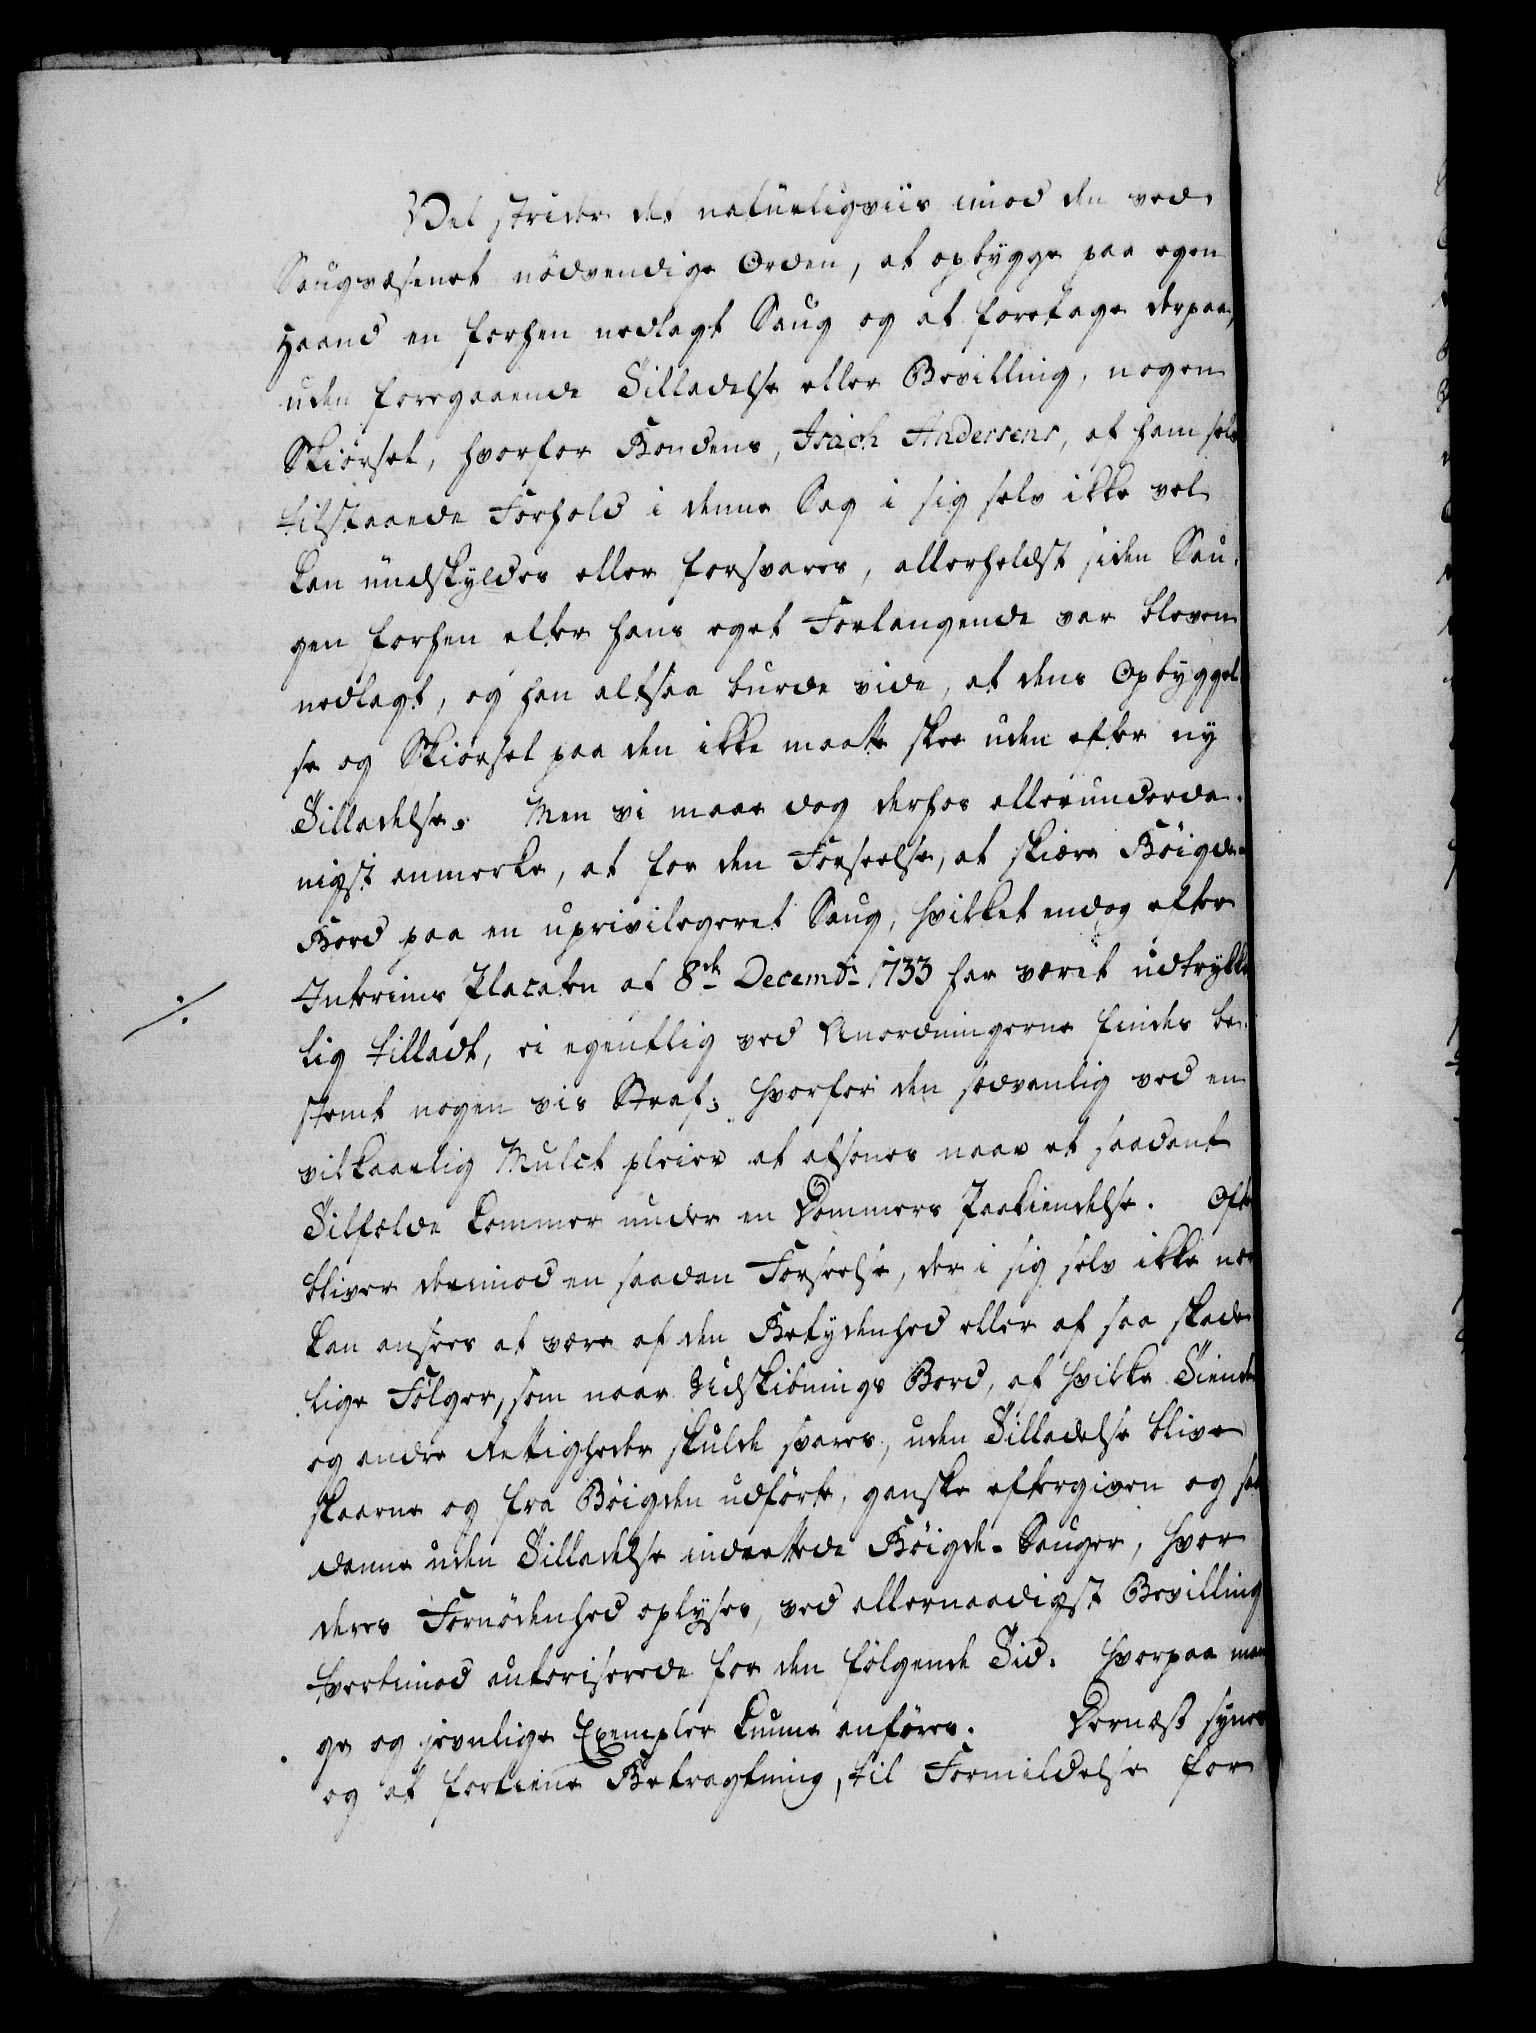 Vel strider det naturligviis imod den ved
Saugvæsenet nödvendige Orden, at opbygge paa egen
Haand en forhen nedlagt Saug og at foretage derpaa,
uden foregaaende Tilladelse eller Bevilling, nogen
Skiørsel, hvorfor Bondens, Isach Andersens, af ham selv
tilstaaede Forhold i denne Sag i sig selv ikke vel
kan undskyldes eller forsvares, allerhelst siden Sau-
gen forhen efter hans eget Forlangende var bleven
nedlagt, og han altsaa burde vide, at dens Opbyggel-
se og Skiørsel paa den ikke maatte skee uden efter ny
Tilladelse. Men vi maae dog derhos allerunderda-
nigst anmerke, at for den Forseelse, at skiære Böigde-
Bord paa en uprivilegeret Saug, hvilket endog efter
Interims Placaten af 8de Decembr 1733 har været udtrykke-
·/·
lig tilladt, ei egentlig ved Anordningerne findes be-
stemt nogen vis Straf; hvorfor den sædvanlig ved en
vilkaarlig Mulct pleier at afsones naar et saadant
Tilfælde kommer under en Dommers Paakiendelse. Ofte
bliver derimod en saadan Forseelse, der i sig selv ikke
kan ansees at være af den Betydenhed eller af saa skade-
lige Følger, som naar Udskibnings Bord, af hvilke Tiende
og andre Rettigheder skulde svares, uden Tilladelse blive
skaarne og fra Böigden udförte, ganske eftergiven og saa-
danne uden Tilladelse indrettede Böigde-Sauger, hvor
deres Fornödenhed oplyses, ved allernaadigst Bevilling
tvertimod autoriserede for den fölgende Tid. Hvorpaa man-
ge og jevnlige Exempler kunne anföres. Dernæst synes
og at fortiene Betragtning, til Formildelse for